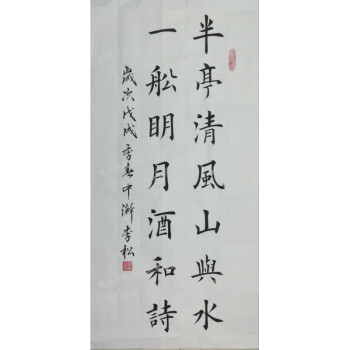 半亭清風山與水
一舩明月酒和詩
歲次戊戌季春中澣李松